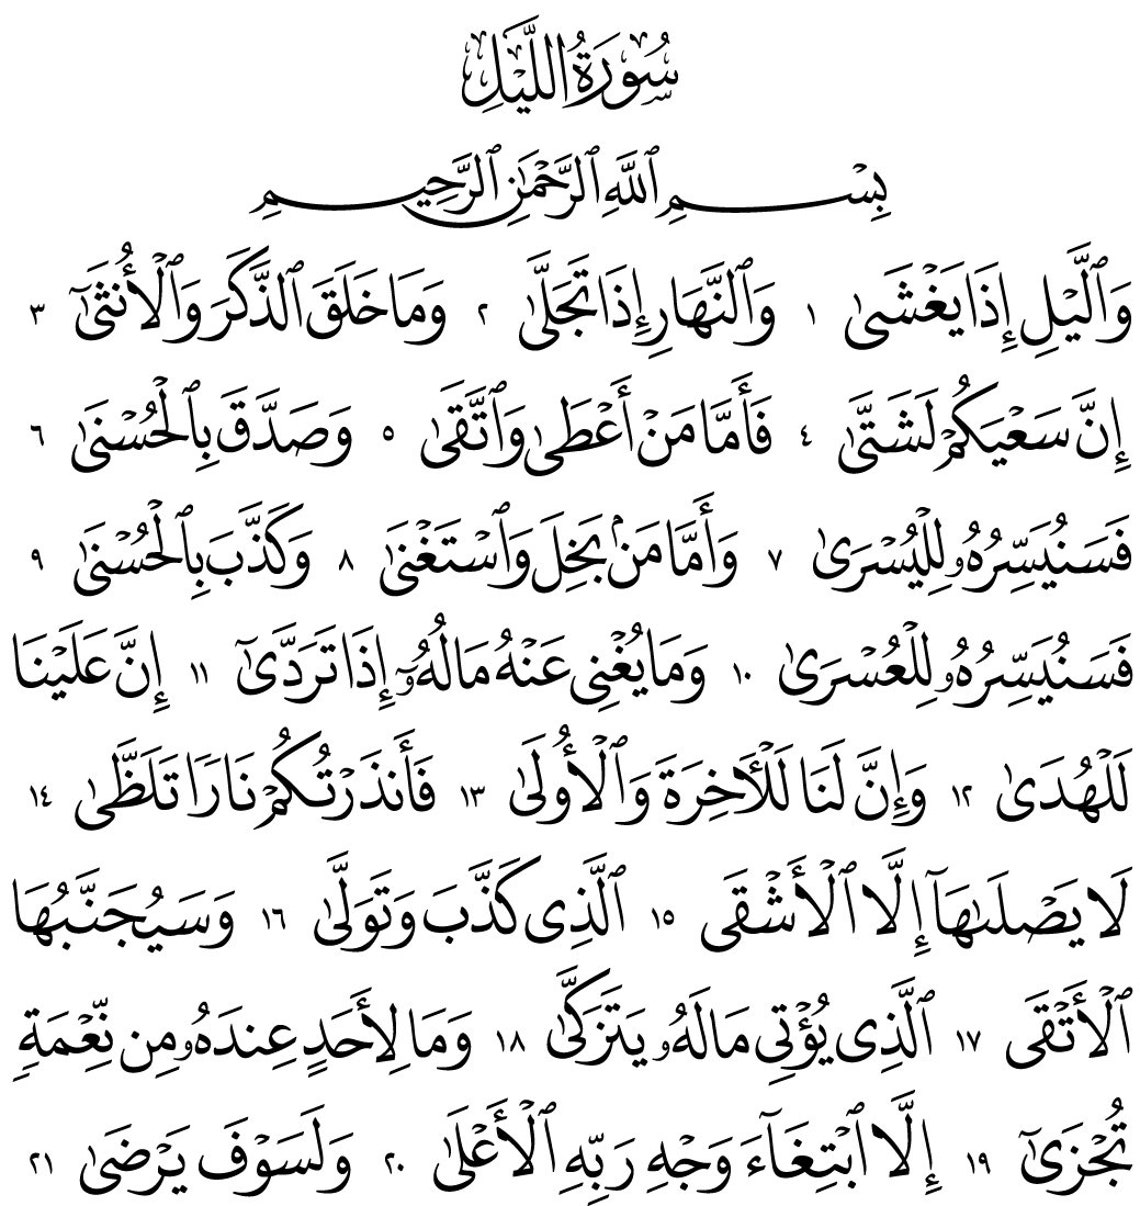 سُورَةُ اللَّيْلِ
بِسْمِ ٱللَّهِ ٱلرَّحْمَٰنِ ٱلرَّحِيمِ
وَٱلَّيْلِ إِذَا يَغْشَىٰ ١ وَٱلنَّهَارِ إِذَا تَجَلَّىٰ ٢ وَمَا خَلَقَ ٱلذَّكَرَ وَٱلْأُنثَىٰٓ ٣
إِنَّ سَعْيَكُمْ لَشَتَّىٰ ٤ فَأَمَّا مَنْ أَعْطَىٰ وَٱتَّقَىٰ ٥ وَصَدَّقَ بِٱلْحُسْنَىٰ ٦
فَسَنُيَسِّرُهُۥ لِلْيُسْرَىٰ ٧ وَأَمَّا مَنۢ بَخِلَ وَٱسْتَغْنَىٰ ٨ وَكَذَّبَ بِٱلْحُسْنَىٰ ٩
فَسَنُيَسِّرُهُۥ لِلْعُسْرَىٰ ١٠ وَمَا يُغْنِى عَنْهُ مَالُهُۥٓ إِذَا تَرَدَّىٰٓ ١١ إِنَّ عَلَيْنَا
لَلْهُدَىٰ ١٢ وَإِنَّ لَنَا لَلْـَٔاخِرَةَ وَٱلْأُولَىٰ ١٣ فَأَنذَرْتُكُمْ نَارًا تَلَظَّىٰ ١٤
لَا يَصْلَىٰهَآ إِلَّا ٱلْأَشْقَى ١٥ ٱلَّذِى كَذَّبَ وَتَوَلَّىٰ ١٦ وَسَيُجَنَّبُهَا
ٱلْأَتْقَى ١٧ ٱلَّذِى يُؤْتِى مَالَهُۥ يَتَزَكَّىٰ ١٨ وَمَا لِأَحَدٍ عِندَهُۥ مِن نِّعْمَةٍ
تُجْزَىٰٓ ١٩ إِلَّا ٱبْتِغَآءَ وَجْهِ رَبِّهِ ٱلْأَعْلَىٰ ٢٠ وَلَسَوْفَ يَرْضَىٰ ٢١